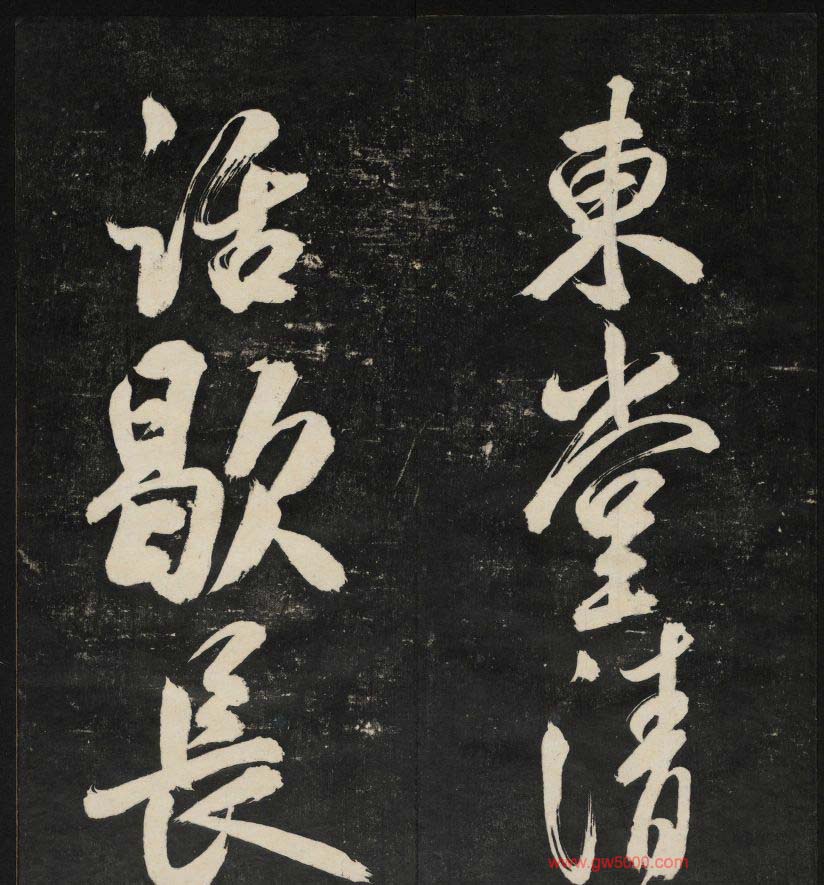 東堂清
話歇長
www.gw5000.com